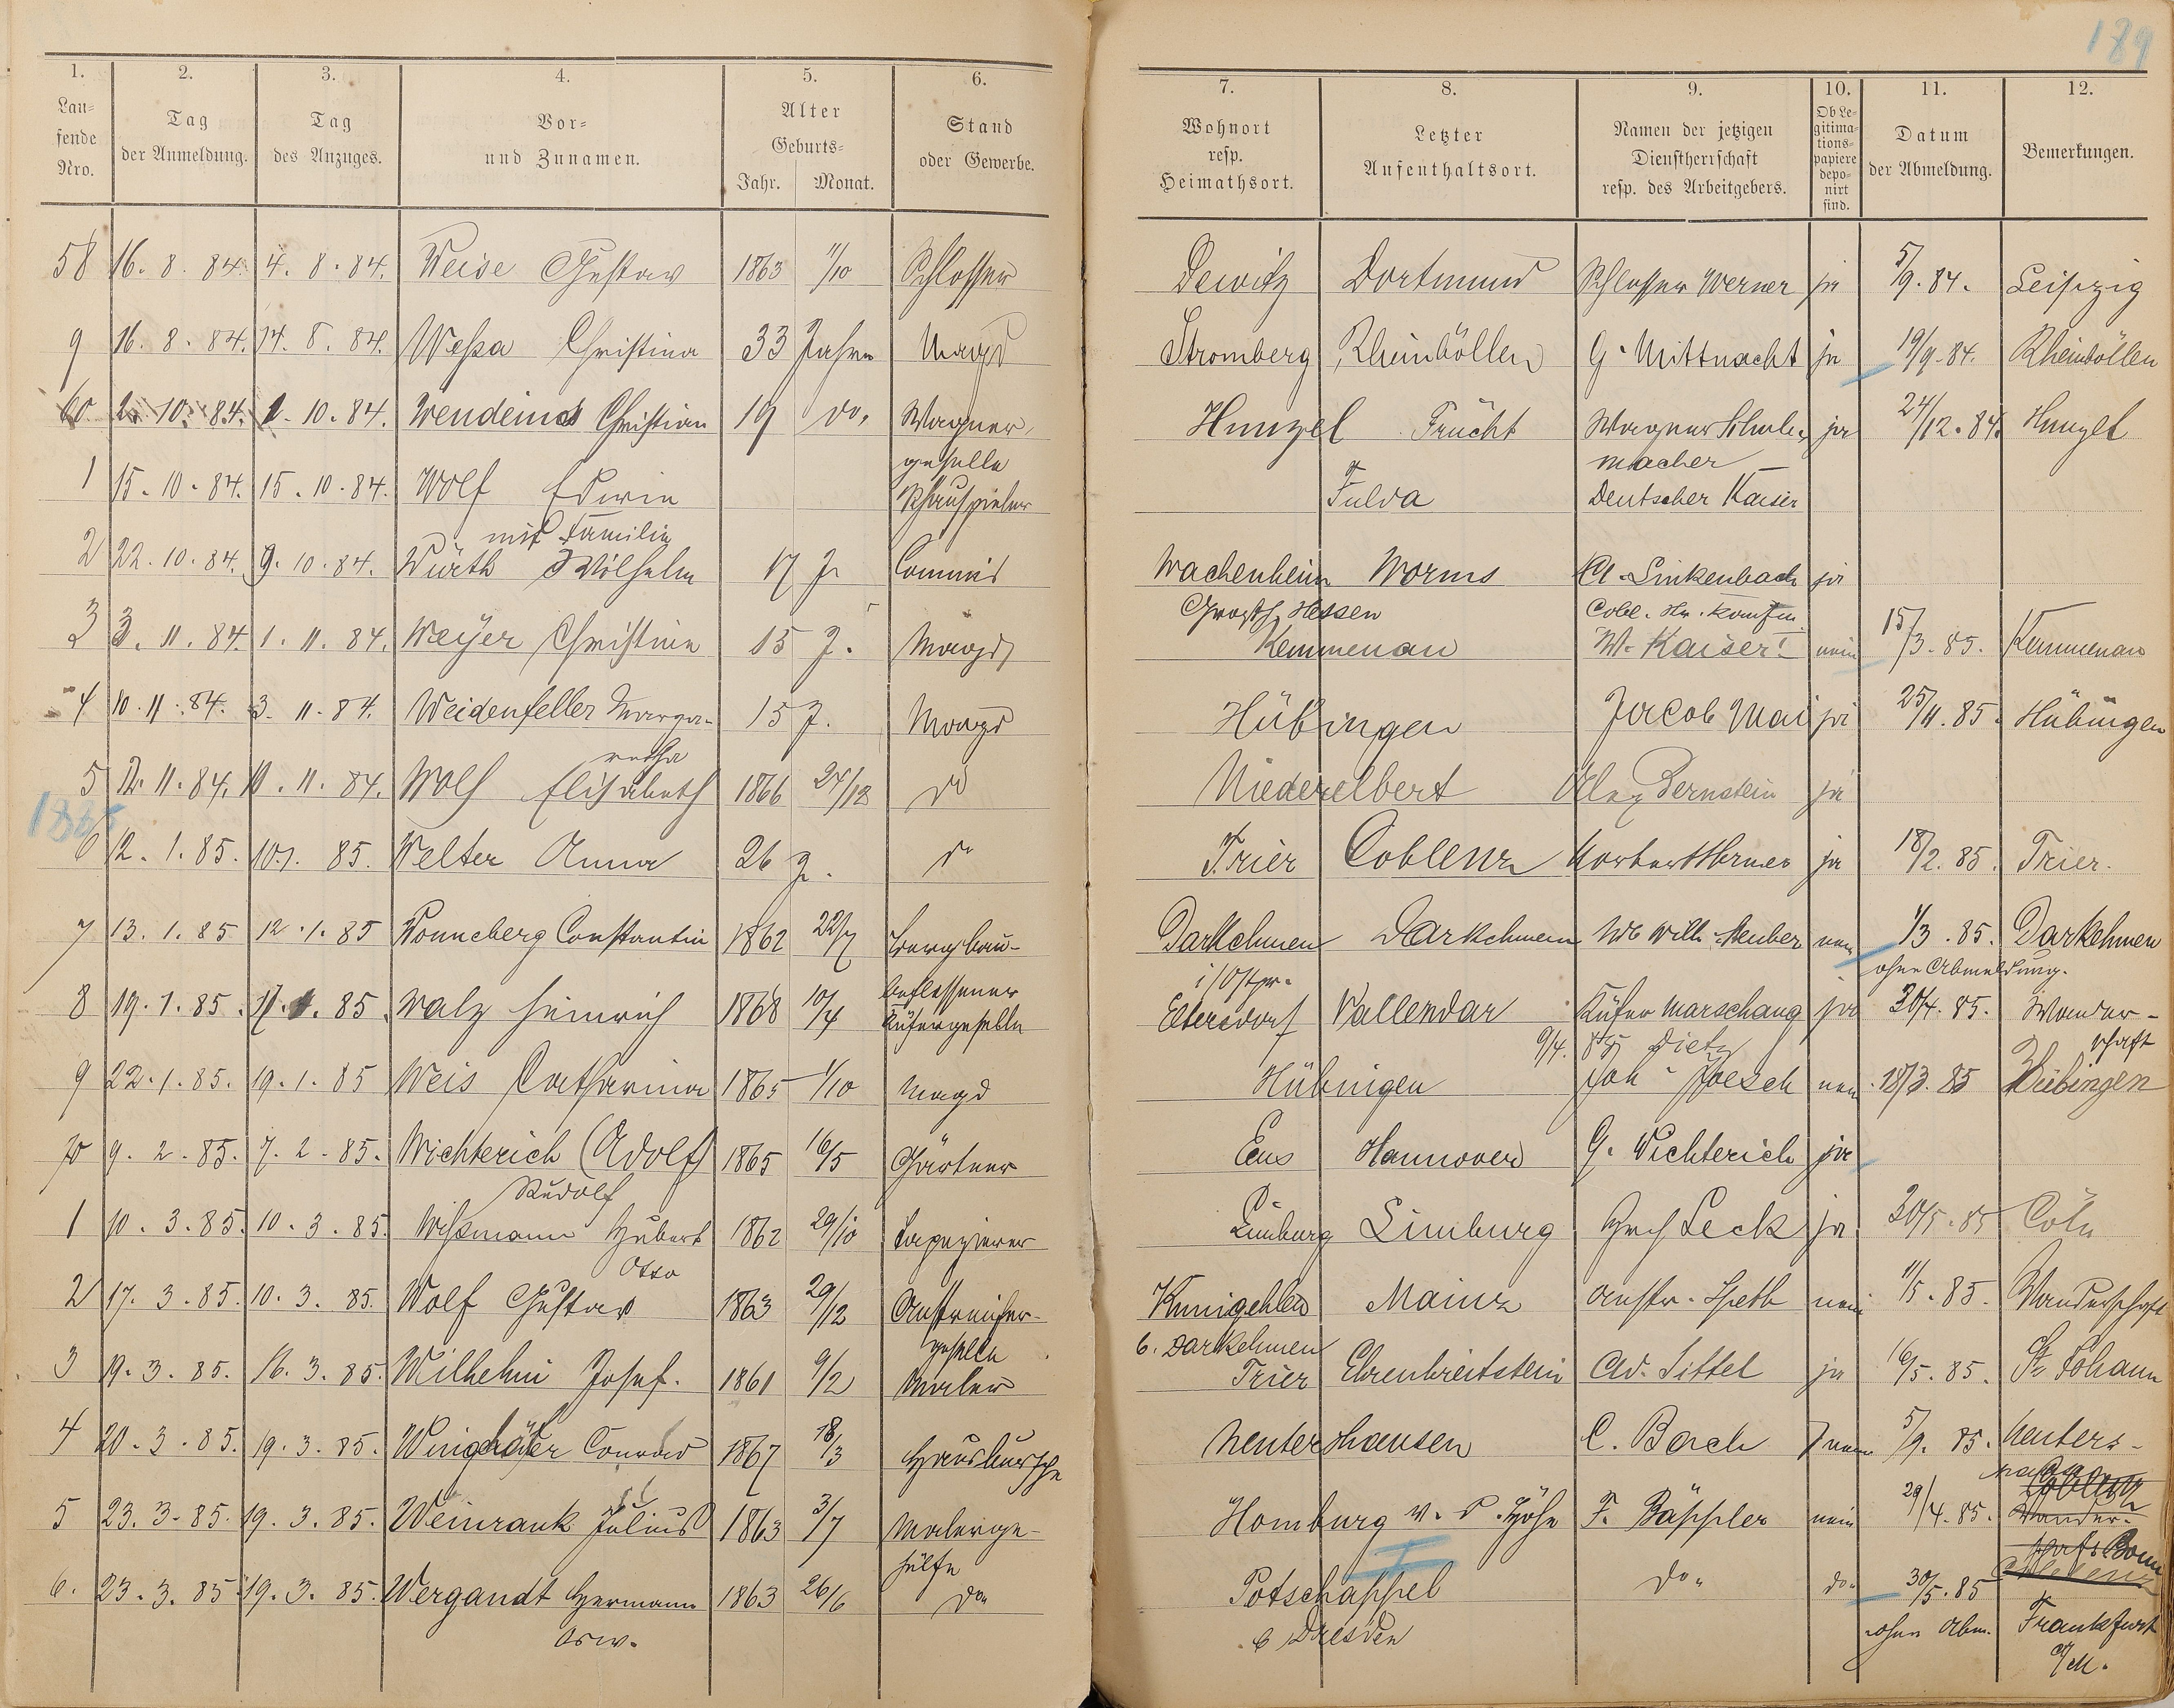 189
1. 2. 3. 4. 5. 6. 7. 8. 9. 10. 11. 12.
Laufende Nro. Tag der Anmeldung. Tag des Anzuges. Vor- und Zunamen. Alter Geburts- Jahr. Monat. Stand oder Gewerbe. Wohnort resp. Heimathsort. Letzter Aufenthaltsort. Namen der jetzigen Dienstherrschaft resp. des Arbeitgebers. Ob Legitimationspapiere deponirt sind. Datum der Abmeldung. Bemerkungen.
58 16. 8. 84. 4. 8. 84. Weise Gustav 1863 11/10 Schlosser Dewitz Dortmund Schlosser Werner ja 5/9. 84. Leipzig
9 16. 8. 84. 14. 8. 84. Weßa Christina 33 Jahre Magd Stromberg Rheinböllen G. Mittnacht ja 19/9. 84. Rheinböllen
60 2. 10. 84. 1. 10. 84. Christian 19 do. Wagner- Hunzel Frücht Wagner Schuh- ja 24/12. 84. Hunzel
geselle macher
1 15. 10. 84. 15. 10. 84. Wolf Edwin Schauspieler Fulda Deutscher Kaiser
mit Familie
2 22. 10. 84. 9. 10. 84. Würth Wilhelm 17 J. Commis Wachenheim Worms A. Linkenbach ja
Großh. Hessen
3 3. 11. 84. 1. 11. 84. Weyer Christine 15 J. Magd Kemmenau W. Kaiser nein 15/3. 85. Kemmenau
4 10. 11. 84. 3. 11. 84. Weidenfeller Marga- 15 J. Magd Hübingen Jacob Mai ja 25/11. 85. Hübingen
retha
5 12. 11. 84. 11. 11. 84. Wolf Elisabeth 1866 24/12 do Niederelbert Alex Bernstein ja
1885
6 12. 1. 85. 10. 1. 85. Welter Anna 26 J. do Trier Coblenz ja 18/2. 85. Trier.
7 13. 1. 85 12. 1. 85 Wonneberg Constantin 1862 22/7 Bergbau- Darkehmen Darkehmen Wb Wilh. Neuber nein 1/3. 85. Darkehmen
beflessener i/Ostpr. ohne Abmeldung.
8 19. 1. 85. 17. 1. 85. Walz Heinrich 1868 10/4 Küfergeselle Eltersdorf Vallendar Küfer Marschang ja 30/4. 85. Wander-
9/4. 85 Dietz schaft
9 22. 1. 85. 19. 1. 85 Weis Catharina 1865 1/10 Magd Hübingen Joh. Poesch nein 18/3. 85 Hübingen
70 9. 2. 85. 7. 2. 85. Wichterich (Adolf) 1865 16/5 Gärtner Ems Hannover G. Wichterich ja
Rudolf
1 10. 3. 85. 10. 3. 85. Wißmann Hubert 1862 29/10 Tapezierer Limburg Limburg Leck ja 20/5. 85 Cöln
Otto
2 17. 3. 85. 10. 3. 85. Wolf Gustav 1863 29/12 Anstreicher- Kunigehlen Mainz Anstr. Speth nein 11/5. 85. Wanderschaft
geselle b. Darkehmen
3 19. 3. 85. 16. 3. 85. Wilhelmi Josef. 1861 9/2 Maler Trier Ehrenbreitstein Ad. Sittel ja 16/5. 85. St Johann
4 20. 3. 85. 19. 3. 85. Conrad 1867 18/3 Hausbursche Nentershausen C. Bach nein 5/9. 85. Nenters-
5 23. 3. 85. 19. 3. 85. Weinrank Julius 1863 3/7 Malerge- Homburg v. d. Höhe F. Bäppler nein 29/4. 85. Wander-
hülfe schaft Bonn
6. 23. 3. 85 19. 3. 85. Wergandt Hermann 1863 26/6 do. Potschappel do. do. 30/5. 85 Coblenz
Osw. b Dresden ohne Abm. Frankfurt
a/M.